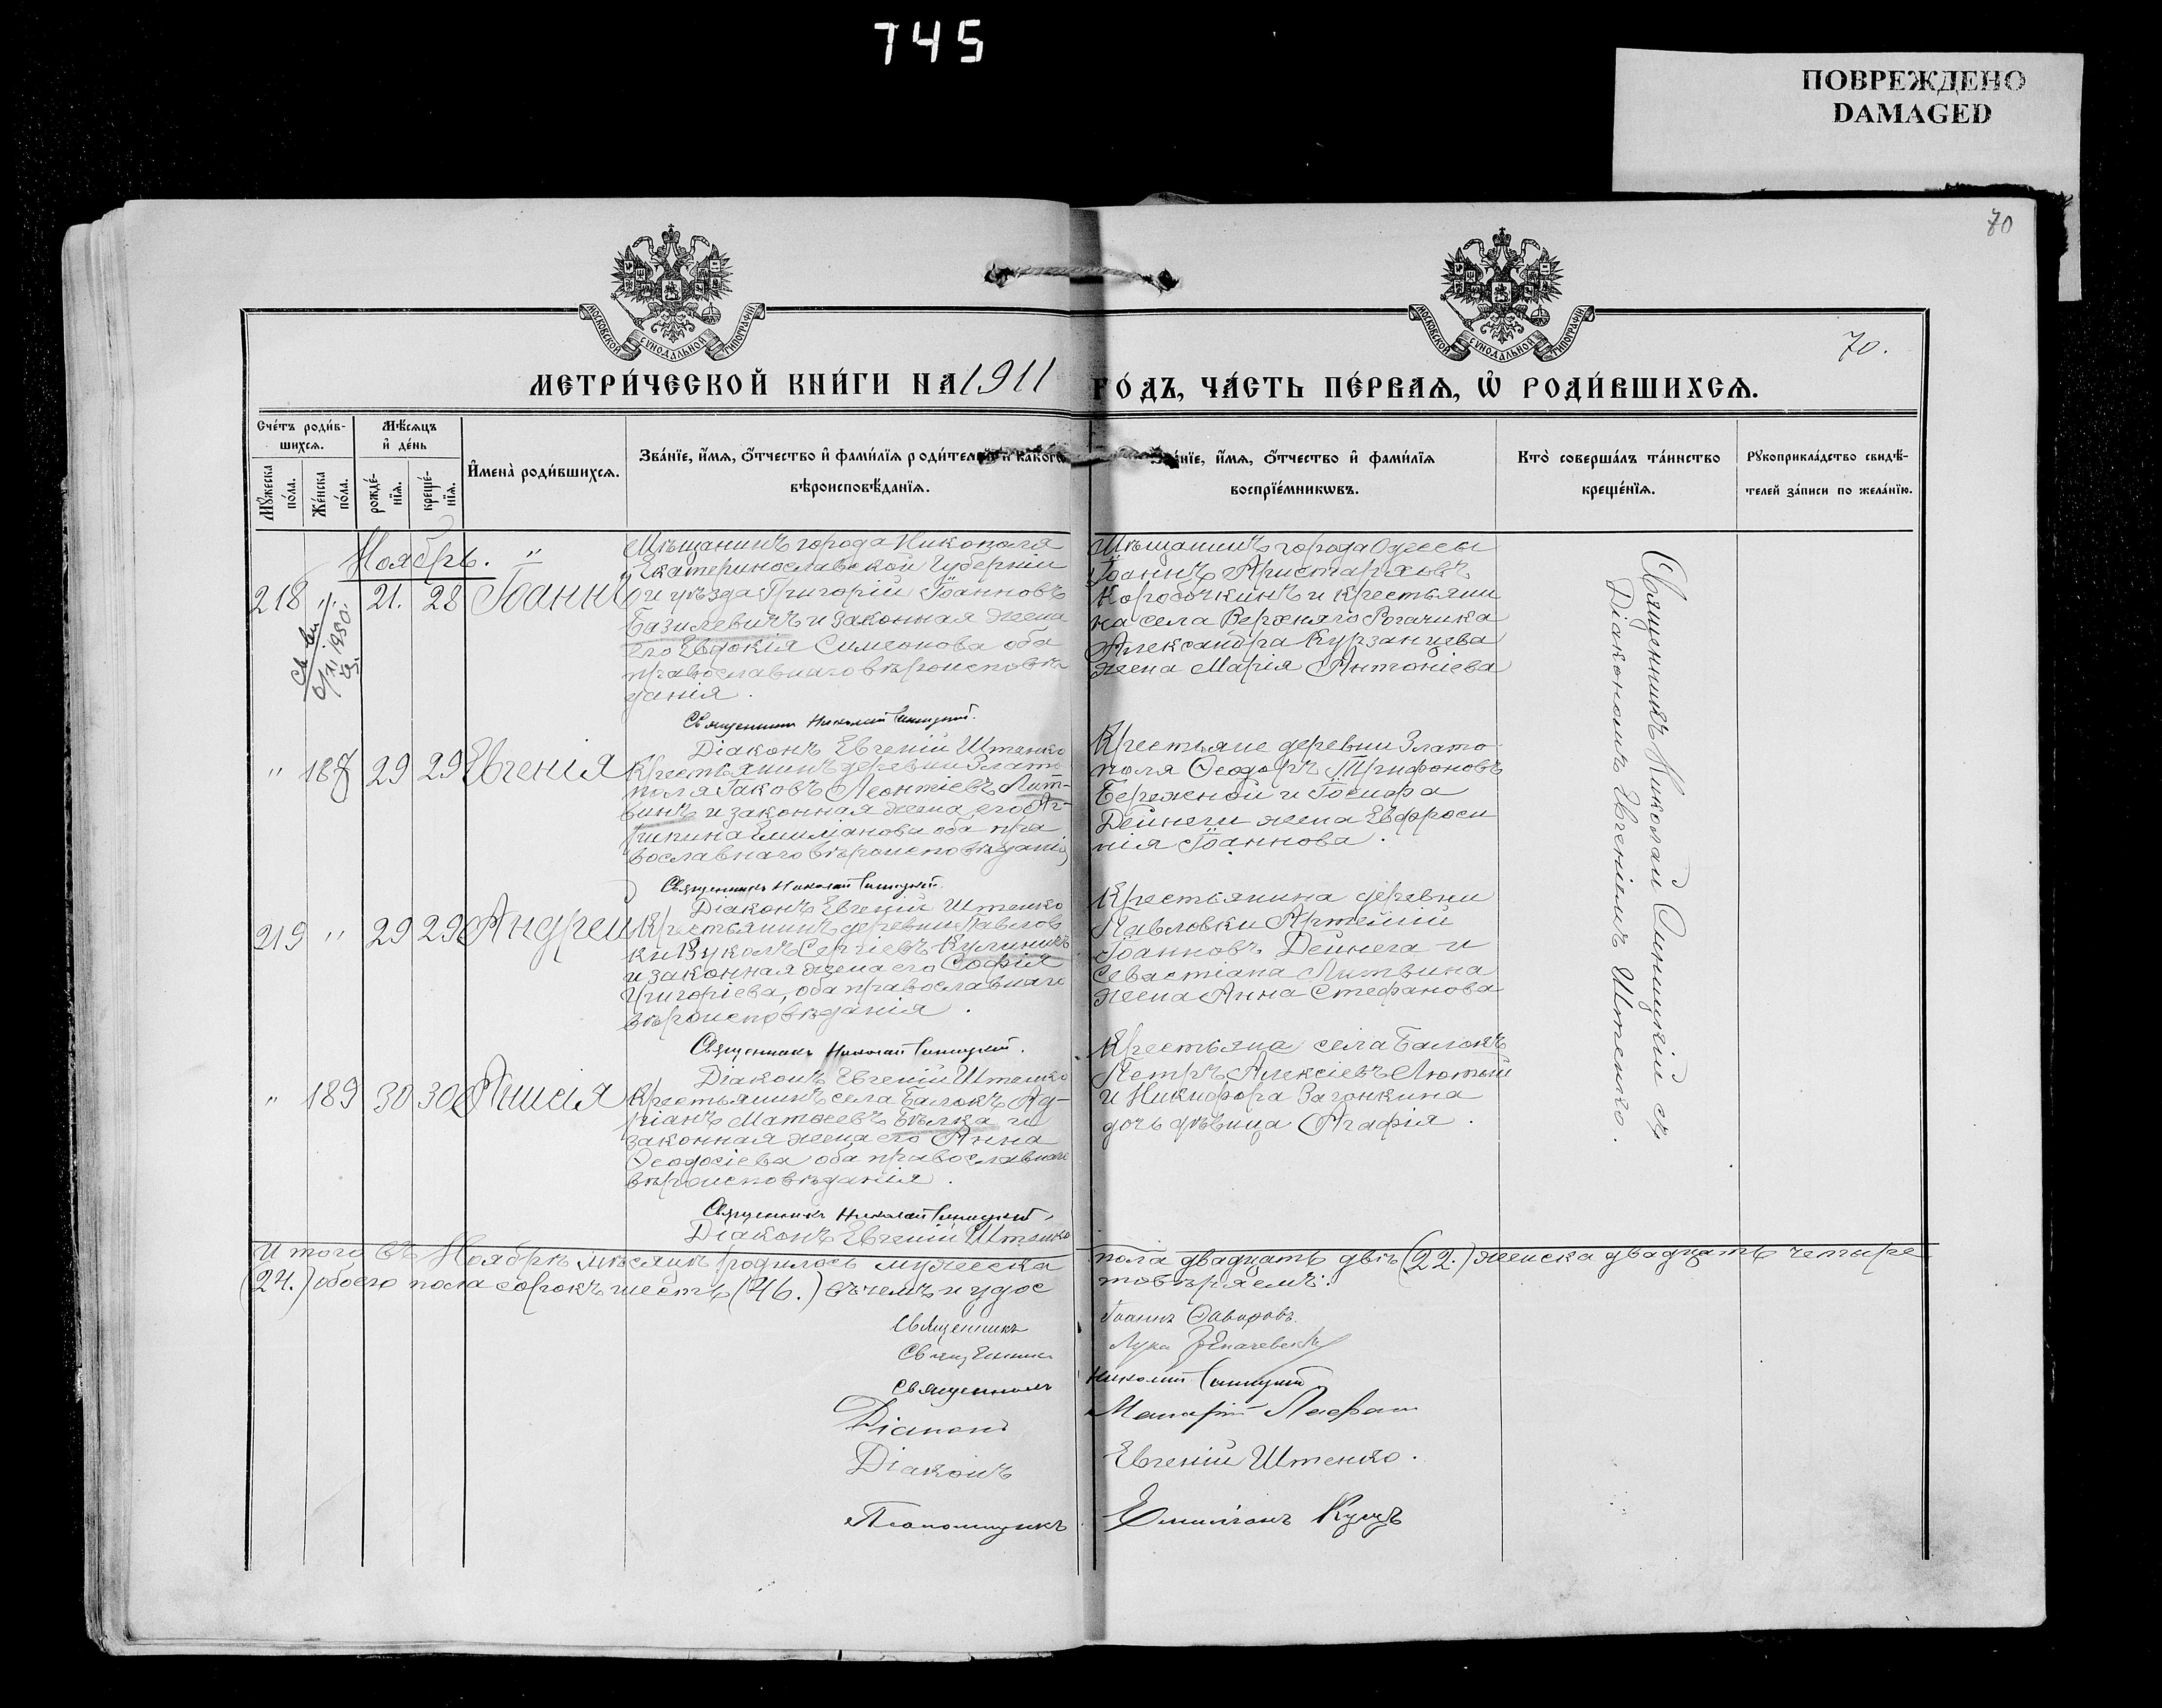 745
ПОВРЕЖДЕНО
DAMAGED
70
МОСКОВСКОЙ СѴНОДАЛЬНОЙ ТИПОГРАФІИ
МОСКОВСКОЙ СѴНОДАЛЬНОЙ ТИПОГРАФІИ
70.
МЕТРИ́ЧЕСКОЙ КНИ́ГИ НА 1911 ГО́ДЪ, ЧА́СТЬ ПЕ́РВАѦ, Ѿ РОДИ́ВШИХСѦ.
Сче́тъ роди́в-
шихсѧ.
Мꙋ́жеска по́ла.
Же́нска по́ла.
Мѣ́сѧцъ
и҆ де́нь
рожде́-
нїѧ.
креще́-
нїѧ.
И҆мена̀ роди́вшихсѧ.
Зва́нїе, и҆́мѧ, ѻ҆́тчество и҆ фами́лїѧ роди́телей и какогѡ
вѣроисповѣ́данїѧ.
Зва́нїе, и҆́мѧ, ѻ҆́тчество и҆ фами́лїѧ
воспрїе́мникѡвъ.
Кто̀ соверша́лъ та́инство
креще́нїѧ.
Рꙋкоприкла́дство свидѣ́-
телей за́писи по жела́нїю.
Ноябрь. "
218 " 21. 28 Іоаннъ
Мѣщанинъ города Никополя
Екатеринославской Губерніи
и уѣзда Григорій Іоанновъ
Базилевичъ и законная жена
его Евдокія Симеонова оба
православнаго вѣроисповѣ
данія.
Священникъ Николай Синицкій.
Діаконъ Евгеній Штенко
Мѣщанинъ города Одессы
Іоаннъ Аристарховъ
Коробочкинъ и крестьяни
на села Верхняго Рогачика
Александра Курзанцева
жена Марія Антоніева
" 188 29 29 Евгенія
Крестьянинъ деревни Злато
поля Іаковъ Леонтіевъ Лит-
винъ и законная жена его Аг-
рипина Емиліанова оба пра
вославнаго вѣроисповѣданія
Священникъ Николай Синицкій.
Діаконъ Евгеній Штенко
Крестьяне деревни Злато
поля Ѳеодоръ Трифоновъ
Бережной и Іосифа
Дейнеги жена Евфроси
нія Іоаннова.
219 " 29 29 Андрей
Крестьянинъ деревни Павлов
ки Вуколъ Сергіевъ Кулиничъ
и законная жена его Софія
Григоріева, оба православнаго
вѣроисповѣданія.
Священникъ Николай Синицкій.
Діаконъ Евгеній Штенко
Крестьянина деревни
Павловки Артемій
Іоанновъ Дейнега и
Севастіана Литвина
жена Анна Стефанова
" 189 30 30 Анисія
Крестьянинъ села Балокъ Ад-
ріанъ Матѳеевъ Бѣлка и
законная жена его Анна
Ѳеодосіева оба православнаго
вѣроисповѣданія.
Священникъ Николай Синицкій.
Діаконъ Евгеній Штенко
Крестьяне села Балокъ
Петръ Алексіевъ Лютый
и Никифора Загонкина
дочь дѣвица Агафія.
Священникъ Николай Синицкій съ
Діакономъ Евгеніемъ Штенко.
Итого въ Ноябрѣ мѣсяцѣ родилось мужеска пола двадцать двѣ (22.) женска двадцать четыре
(24.) обоего пола сорокъ шесть (46.) въ чемъ и удос товѣряемъ:
Священникъ Іоаннъ
Священникъ Лука
Священникъ Николай Синицкій
Діаконъ
Діаконъ Евгеній Штенко.
Псаломщикъ Емиліанъ Куцъ